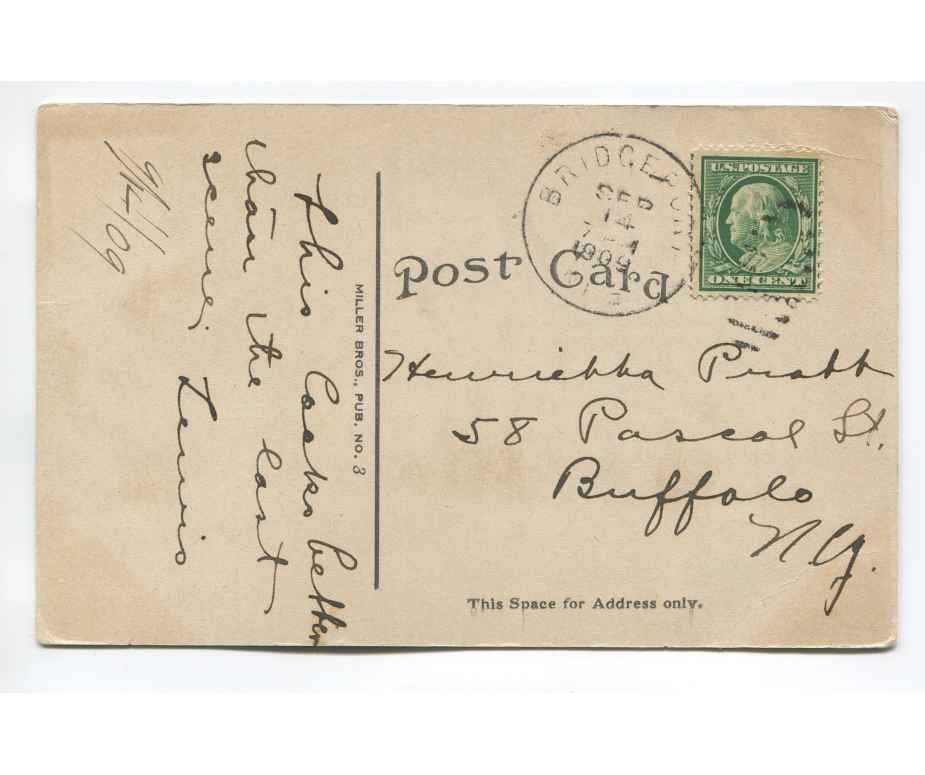 9/14/09
This Looks better
than the last
scene;
Lewis
MILLER BROS., PUB. NO. 3
Post Card
BRIDGEPORT
SEP
14
1909
U.S. POSTAGE
ONE CENT
Henrietta Pratt
58 Pascal St.
Buffalo
N.Y.
This Space for Address only.